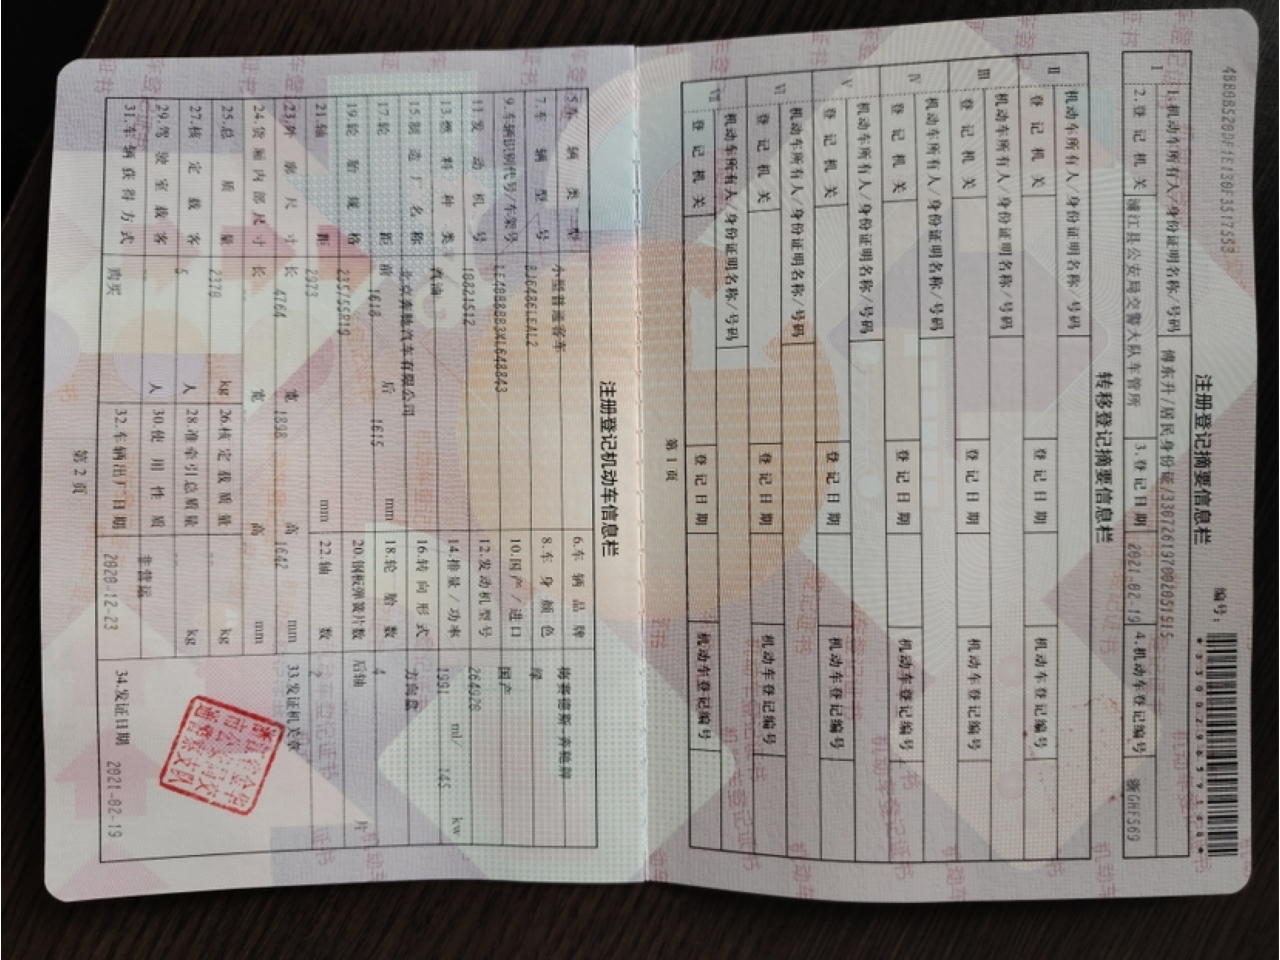 4BB0B520DF1E130F3517553
编号：
*330029659148*
注册登记摘要信息栏
I 1.机动车所有人/身份证明名称/号码 傅东升/居民身份证/330726197002051515
2.登记机关 浦江县公安局交警大队车管所 3.登记日期 2021-02-19 4.机动车登记编号 浙GHF569
转移登记摘要信息栏
II 机动车所有人/身份证明名称/号码
登记机关 登记日期 机动车登记编号
III 机动车所有人/身份证明名称/号码
登记机关 登记日期 机动车登记编号
IV 机动车所有人/身份证明名称/号码
登记机关 登记日期 机动车登记编号
V 机动车所有人/身份证明名称/号码
登记机关 登记日期 机动车登记编号
VI 机动车所有人/身份证明名称/号码
登记机关 登记日期 机动车登记编号
VII 机动车所有人/身份证明名称/号码
登记机关 登记日期 机动车登记编号
第1页
注册登记机动车信息栏
5.车辆类型 小型普通客车 6.车辆品牌 梅赛德斯-奔驰牌
7.车辆型号 BJ6486LEAL2 8.车身颜色 绿
9.车辆识别代号/车架号 LE4BBBB3XL648843 10.国产/进口 国产
11.发动机号 10821512 12.发动机型号 264920
13.燃料种类 汽油 14.排量/功率 1991 ml/ 145 kw
15.制造厂名称 北京奔驰汽车有限公司 16.转向形式 方向盘
17.轮距 前 1618 后 1615 mm 18.轮胎数 4
19.轮胎规格 235/55R19 20.钢板弹簧片数 后轴 片
21.轴距 2973 mm 22.轴数 2
23.外廓尺寸 长 4764 宽 1898 高 1642 mm 33.发证机关章
24.货厢内部尺寸 长 宽 高 mm
25.总质量 2370 kg 26.核定载质量 kg
27.核定载客 5 人 28.准牵引总质量 kg
29.驾驶室载客 人 30.使用性质 非营运
31.车辆获得方式 购买 32.车辆出厂日期 2020-12-23 34.发证日期 2021-02-19
第2页